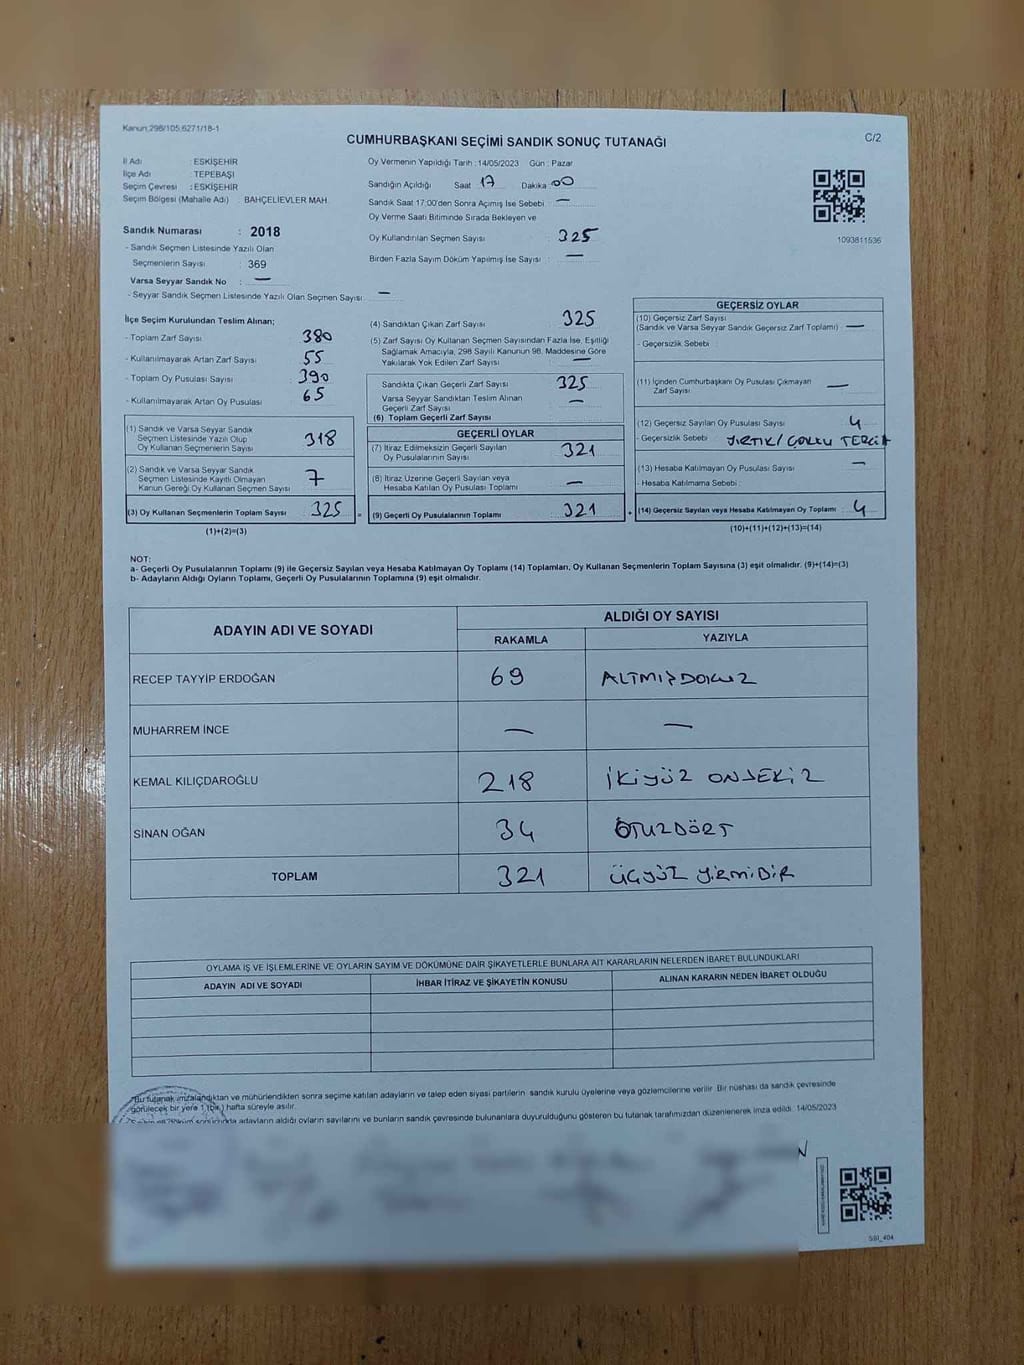 Kanun:298/105,6271/18-1
C/2
CUMHURBAŞKANI SEÇİMİ SANDIK SONUÇ TUTANAĞI
İl Adı : ESKİŞEHİR
İlçe Adı : TEPEBAŞI
Seçim Çevresi : ESKİŞEHİR
Seçim Bölgesi (Mahalle Adı) : BAHÇELİEVLER MAH.
Sandık Numarası : 2018
- Sandık Seçmen Listesinde Yazılı Olan
Seçmenlerin Sayısı : 369
Varsa Seyyar Sandık No : —
- Seyyar Sandık Seçmen Listesinde Yazılı Olan Seçmen Sayısı : —
Oy Vermenin Yapıldığı Tarih : 14/05/2023 Gün : Pazar
Sandığın Açıldığı Saat 17 Dakika 00
Sandık Saat 17:00'den Sonra Açımış İse Sebebi : —
Oy Verme Saati Bitiminde Sırada Bekleyen ve
Oy Kullandırılan Seçmen Sayısı : 325
Birden Fazla Sayım Döküm Yapılmış İse Sayısı : —
1093811536
İlçe Seçim Kurulundan Teslim Alınan;
- Toplam Zarf Sayısı : 380
- Kullanılmayarak Artan Zarf Sayısı : 55
- Toplam Oy Pusulası Sayısı : 390
- Kullanılmayarak Artan Oy Pusulası : 65
(1) Sandık ve Varsa Seyyar Sandık
Seçmen Listesinde Yazılı Olup
Oy Kullanan Seçmenlerin Sayısı : 318
(2) Sandık ve Varsa Seyyar Sandık
Seçmen Listesinde Kayıtlı Olmayan
Kanun Gereği Oy Kullanan Seçmen Sayısı : 7
(3) Oy Kullanan Seçmenlerin Toplam Sayısı : 325
(1)+(2)=(3)
(4) Sandıktan Çıkan Zarf Sayısı : 325
(5) Zarf Sayısı Oy Kullanan Seçmen Sayısından Fazla İse, Eşitliği
Sağlamak Amacıyla, 298 Sayılı Kanunun 98. Maddesine Göre
Yakılarak Yok Edilen Zarf Sayısı : —
Sandıkta Çıkan Geçerli Zarf Sayısı : 325
Varsa Seyyar Sandıktan Teslim Alınan
Geçerli Zarf Sayısı : —
(6) Toplam Geçerli Zarf Sayısı
GEÇERLİ OYLAR
(7) İtiraz Edilmeksizin Geçerli Sayılan
Oy Pusulalarının Sayısı : 321
(8) İtiraz Üzerine Geçerli Sayılan veya
Hesaba Katılan Oy Pusulası Toplamı : —
= (9) Geçerli Oy Pusulalarının Toplamı : 321
GEÇERSİZ OYLAR
(10) Geçersiz Zarf Sayısı
(Sandık ve Varsa Seyyar Sandık Geçersiz Zarf Toplamı) : —
- Geçersizlik Sebebi :
(11) İçinden Cumhurbaşkanı Oy Pusulası Çıkmayan
Zarf Sayısı : —
(12) Geçersiz Sayılan Oy Pusulası Sayısı : 4
- Geçersizlik Sebebi : YIRTIK/ÇOKLU TERCİH
(13) Hesaba Katılmayan Oy Pusulası Sayısı : —
- Hesaba Katılmama Sebebi :
+ (14) Geçersiz Sayılan veya Hesaba Katılmayan Oy Toplamı : 4
(10)+(11)+(12)+(13)=(14)
NOT:
a- Geçerli Oy Pusulalarının Toplamı (9) ile Geçersiz Sayılan veya Hesaba Katılmayan Oy Toplamı (14) Toplamları, Oy Kullanan Seçmenlerin Toplam Sayısına (3) eşit olmalıdır. (9)+(14)=(3)
b- Adayların Aldığı Oyların Toplamı, Geçerli Oy Pusulalarının Toplamına (9) eşit olmalıdır.
ADAYIN ADI VE SOYADI
ALDIĞI OY SAYISI
RAKAMLA YAZIYLA
RECEP TAYYİP ERDOĞAN 69 ALTMIŞDOKUZ
MUHARREM İNCE — —
KEMAL KILIÇDAROĞLU 218 İKİYÜZ ONSEKİZ
SİNAN OĞAN 34 OTUZDÖRT
TOPLAM 321 ÜÇYÜZ YİRMİBİR
OYLAMA İŞ VE İŞLEMLERİNE VE OYLARIN SAYIM VE DÖKÜMÜNE DAİR ŞİKAYETLERLE BUNLARA AİT KARARLARIN NELERDEN İBARET BULUNDUKLARI
ADAYIN ADI VE SOYADI İHBAR İTİRAZ VE ŞİKAYETİN KONUSU ALINAN KARARIN NEDEN İBARET OLDUĞU
Bu tutanak imzalandıktan ve mühürlendikten sonra seçime katılan adayların ve talep eden siyasi partilerin sandık kurulu üyelerine veya gözlemcilerine verilir. Bir nüshası da sandık çevresinde
görülecek bir yere 1 (bir) hafta süreyle asılır.
adayların aldığı oyların sayılarını ve bunların sandık çevresinde bulunanlara duyurulduğunu gösteren bu tutanak tarafımızdan düzenlenerek imza edildi. 14/05/2023
SSI_404